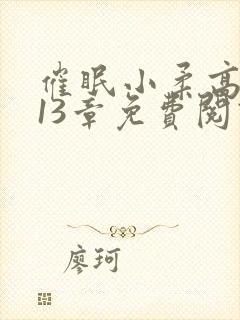 催眠小柔高
13章免費閱
廖珂